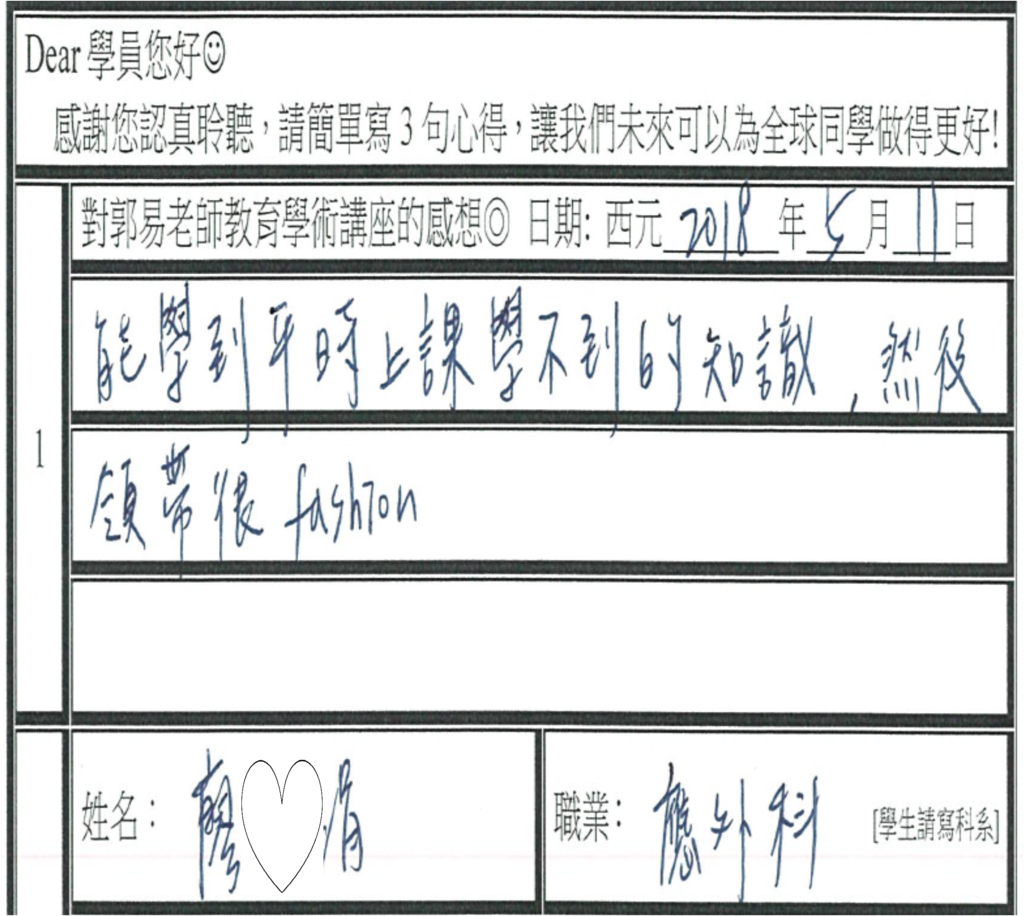 Dear 學員您好☺
感謝您認真聆聽，請簡單寫 3 句心得，讓我們未來可以為全球同學做得更好!
對郭易老師教育學術講座的感想◎ 日期: 西元 2018 年 5 月 11 日
1
能學到平時上課學不到的知識，然後
領帶很 fashion
姓名： 廖♡涓
職業： 應外科 [學生請寫科系]